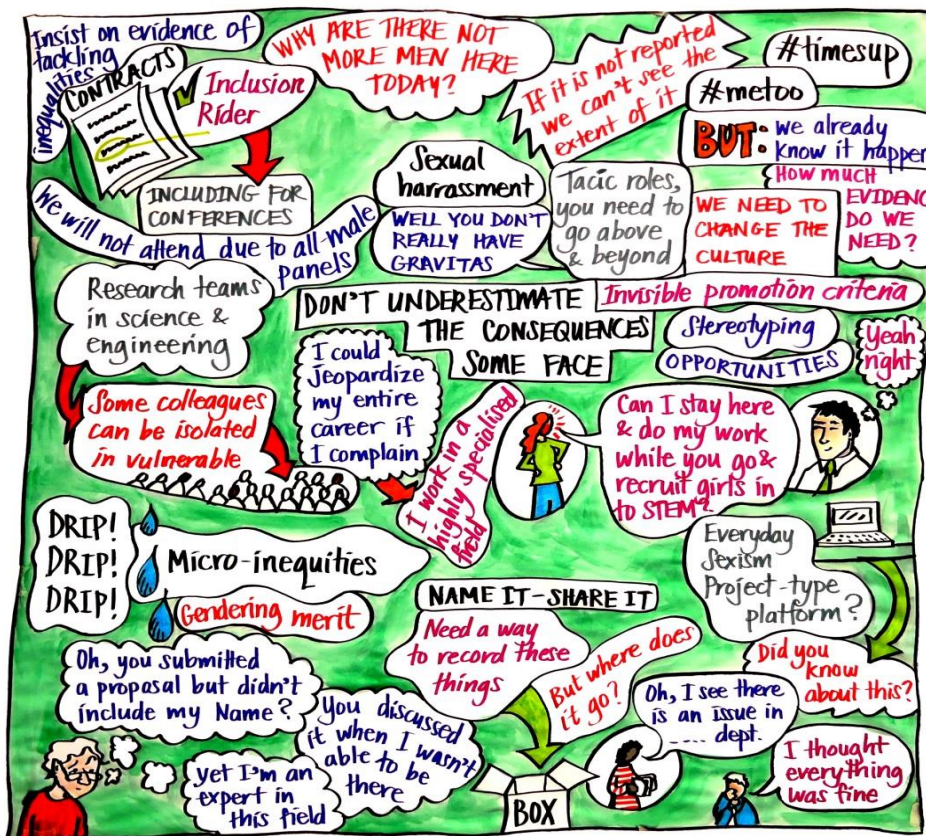 Insist on evidence of
tackling
inequalities
CONTRACTS
Inclusion
Rider
WHY ARE THERE NOT
MORE MEN HERE
TODAY?
If it is not reported
we can't see the
extent of it
#timesup
#metoo
BUT: we already
know it happen
HOW MUCH
EVIDENC
DO WE
NEED?
INCLUDING FOR
CONFERENCES
We will not attend due to all-male
panels
Sexual
harrassment
WELL YOU DON'T
REALLY HAVE
GRAVITAS
Tacic roles,
you need to
go above
& beyond
WE NEED TO
CHANGE THE
CULTURE
Research teams
in science &
engineering
DON'T UNDERESTIMATE
THE CONSEQUENCES
SOME FACE
Invisible promotion criteria
Stereotyping
OPPORTUNITIES
Yeah
right
Some colleagues
can be isolated
in vulnerable
I could
Jeopardize
my entire
career if
I complain
I work in a
highly specialised
field
Can I stay here
& do my work
while you go &
recruit girls in
to STEM?
DRIP!
DRIP!
DRIP!
Micro-inequities
Gendering merit
Everyday
Sexism
Project-type
platform?
NAME IT-SHARE IT
Need a way
to record these
things
But where does
it go?
Did you
know
about this?
Oh, you submitted
a proposal but didn't
include my Name?
You discussed
it when I wasn't
able to be
there
yet I'm an
expert in
this field
BOX
Oh, I see there
is an issue in
.... dept.
I thought
everything
was fine